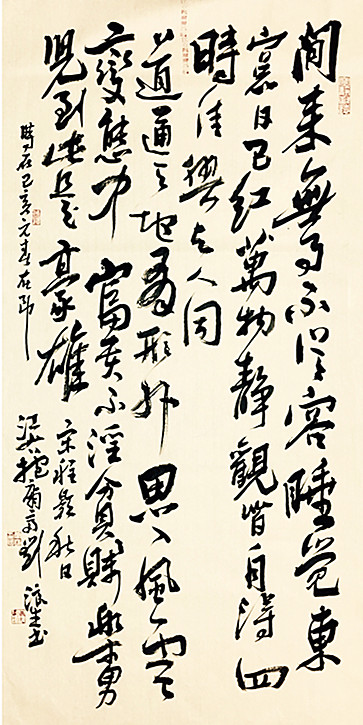 閒來無事不從容睡覺東
窗日已紅萬物靜觀皆自得四
時佳興与人同
道通天地有形外思入風雲
變態中富貴不淫貧賤樂男
兒到此是豪雄
時在己亥元春
宋程顥秋日
劉
書